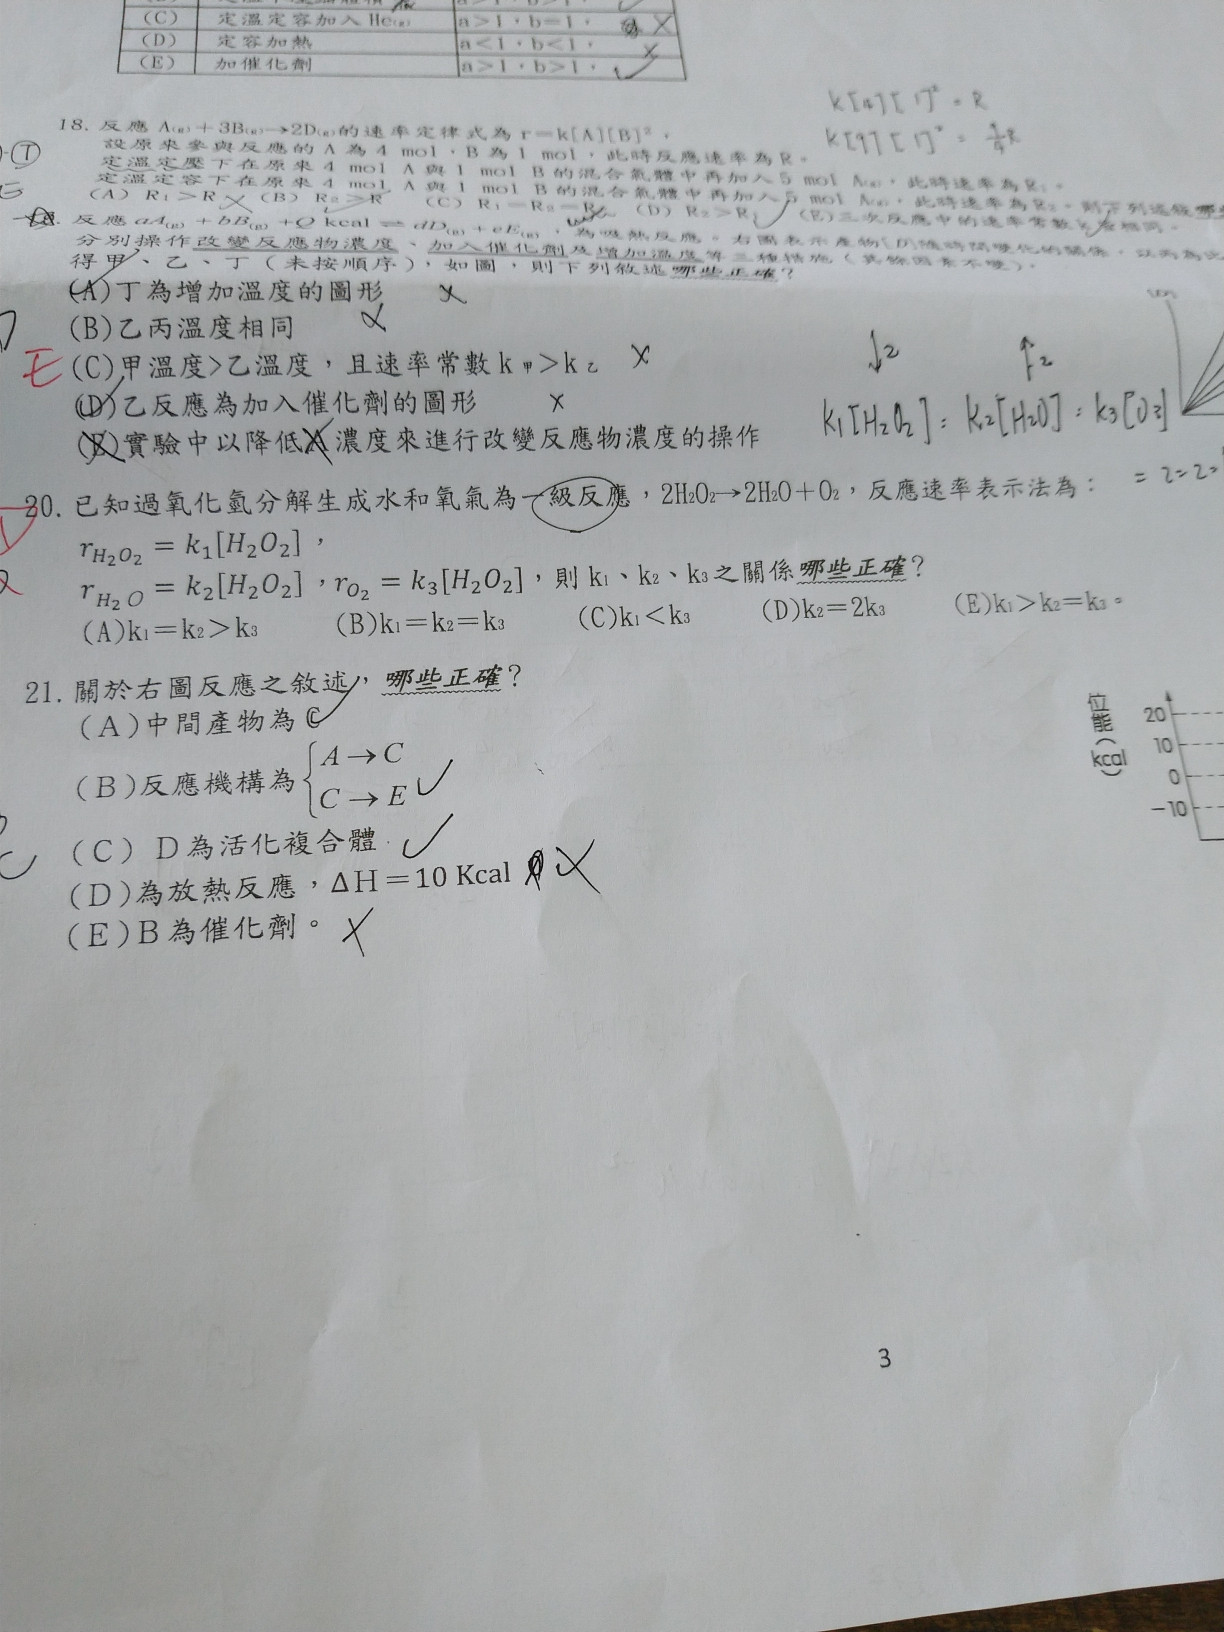 (C) 定溫定容加入He(g) a>1，b=1， X
(D) 定容加熱 a<1，b<1， X
(E) 加催化劑 a>1，b>1，
k[ ][1]² = R
k[9][1]² = R
18. 反應 A(g)＋3B(g)→2D(g)的速率定律式為 r＝k[A][B]²，
設原來參與反應的 A 為 4 mol，B 為 1 mol，此時反應速率為 R。
定溫定壓下在原來 4 mol A 與 1 mol B 的混合氣體中再加入 5 mol A(g)，此時速率為R₁。
定溫定容下在原來 4 mol A 與 1 mol B 的混合氣體中再加入 5 mol A(g)，此時速率為 R₂。則下列敘述哪些
(A) R₁＞R (B) R₂＞R (C) R₁＝R₂＝R (D) R₂＞R₁ (E)三次反應中的速率常數 相同。
反應 aA(g) + bB(g) + Q kcal ⇌ dD(g) + eE(g)，為吸熱反應。右圖表示產物(D)隨時間變化的關係，以丙為
分別操作改變反應物濃度、加入催化劑及增加溫度等三種措施（其餘因素不變），
得甲、乙、丁（未按順序），如圖，則下列敘述哪些正確？
(A)丁為增加溫度的圖形 X
(B)乙丙溫度相同
E (C)甲溫度>乙溫度，且速率常數 k甲>k乙 X
(D)乙反應為加入催化劑的圖形 X
(E)實驗中以降低A濃度來進行改變反應物濃度的操作
↓2 ↑2
k₁[H₂O₂] = k₂[H₂O] = k₃[O₂]
= 2=2=
20. 已知過氧化氫分解生成水和氧氣為一級反應，2H₂O₂→2H₂O＋O₂，反應速率表示法為：
r_H₂O₂ = k₁[H₂O₂]，
r_H₂O = k₂[H₂O₂]，r_O₂ = k₃[H₂O₂]，則 k₁、k₂、k₃之關係哪些正確？
(A)k₁＝k₂＞k₃ (B)k₁＝k₂＝k₃ (C)k₁＜k₃ (D)k₂＝2k₃ (E)k₁＞k₂＝k₃。
21. 關於右圖反應之敘述，哪些正確？
(A)中間產物為 C
(B)反應機構為 { A → C
C → E
(C) D為活化複合體
(D)為放熱反應，ΔH＝10 Kcal X
(E)B為催化劑。 X
位能(kcal)
20
10
0
−10
3